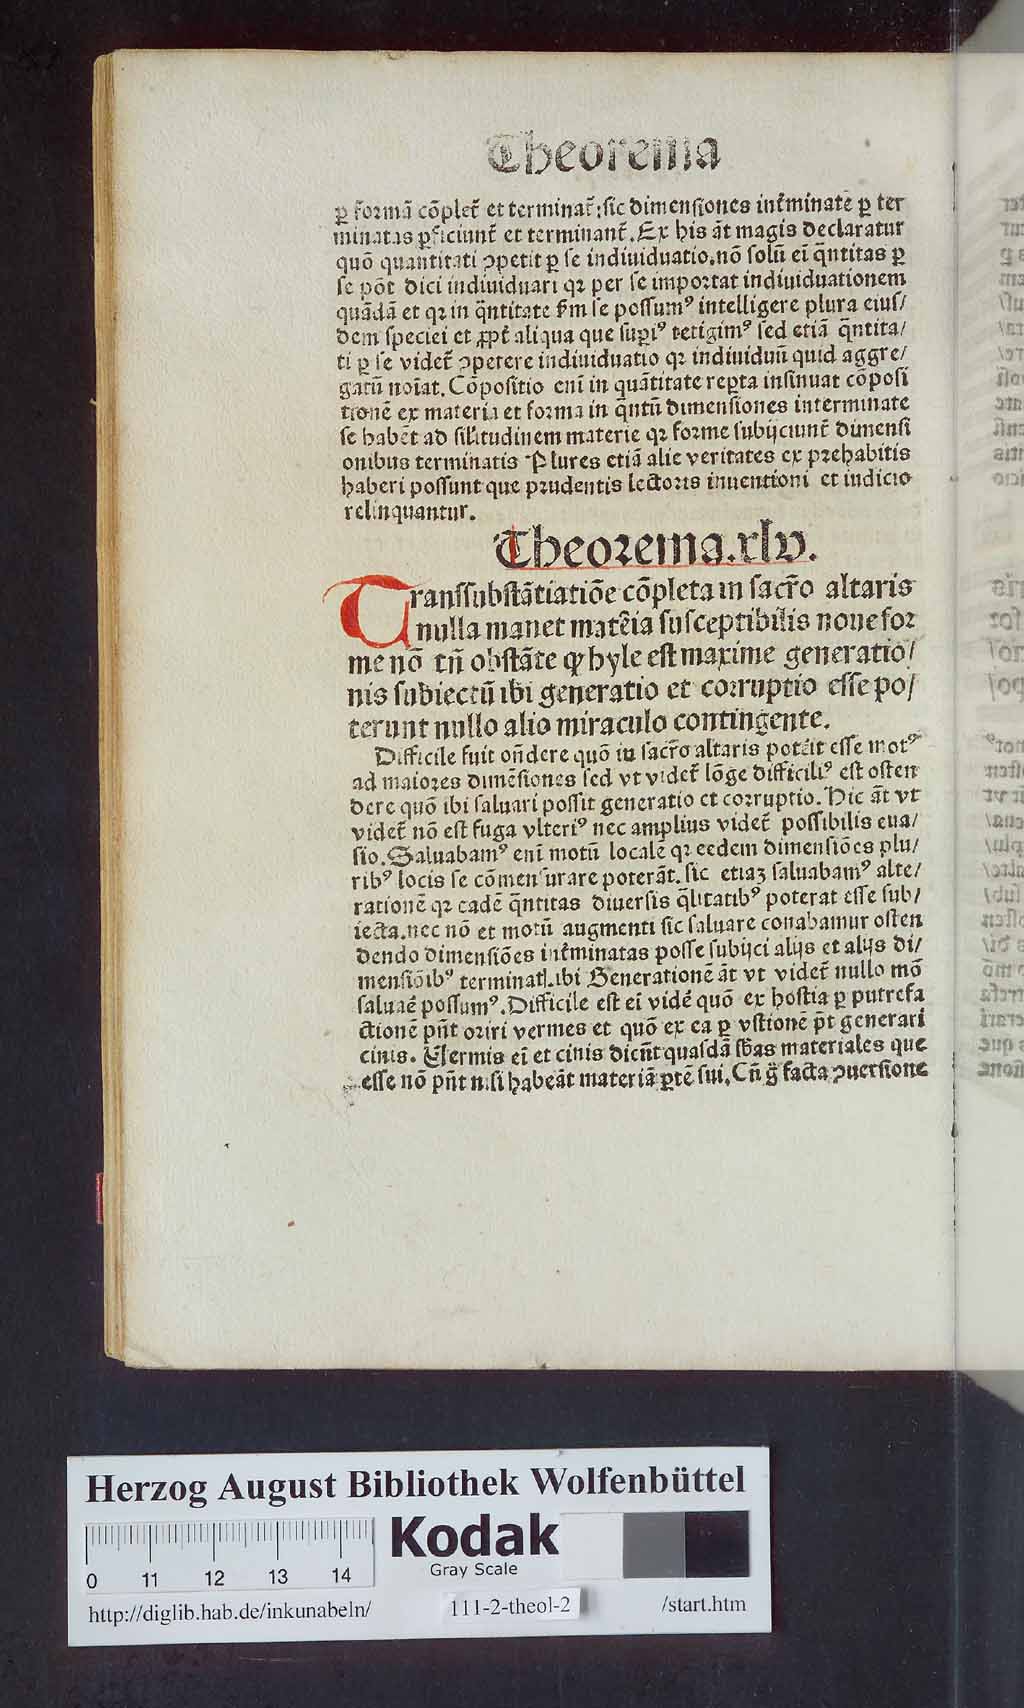 Theorema
ꝑ formā cōplet᷑ et terminat᷑: sic dimensiones int᷑minate ꝑ ter
minatas ꝑficiunt᷑ et terminant᷑. Ex his āt magis declaratur
quō quantitati ꝯpetit ꝑ se indiuiduatio. nō solū ei q̄ntitas ꝑ
se pōt dici indiuiduari qꝛ per se importat indiuiduationem
quādā et qꝛ in q̄ntitate fm se possumꝰ intelligere plura eius/
dem speciei et ꝓpt᷑ aliqua que suꝑiꝰ tetigimꝰ sed etiā q̄ntita/
ti ꝑ se videt᷑ ꝯpetere indiuiduatio qꝛ indiuiduū quid aggre/
gatū noīat. Cōpositio enī in quātitate reꝑta insinuat cōposi
tionē ex materia et forma in q̄ntū dimensiones interminate
se habēt ad silitudinem materie qꝛ forme subijciunt᷑ dimensi
onibus terminatis Plures etiā alie veritates ex prehabitis
haberi possunt que prudentis lectoris inuentioni et iudicio
relinquantur.
Theorema.xlv.
Transsubstātiatiōe cōpleta in sacr̄o altaris
nulla manet mat᷑ia susceptibilis noue for
me nō tn̄ obstāte ꝙ hyle est maxime generatio/
nis subiectū ibi generatio et corruptio esse po/
terunt nullo alio miraculo contingente.
Difficile fuit on̄dere quō in sacr̄o altaris poterit esse motꝰ
ad maiores dimēsiones sed vt videt᷑ lōge difficiliꝰ est osten
dere quō ibi saluari possit generatio et corruptio. Hic āt vt
videt᷑ nō est fuga vlteriꝰ nec amplius videt᷑ possibilis eua/
sio. Saluabamꝰ enī motū localē qꝛ eedem dimensiōes plu/
ribꝰ locis se cōmensurare poterāt. sic etiaꝫ saluabamꝰ alte/
rationē qꝛ eadē q̄ntitas diuersis q̄litatibꝰ poterat esse sub/
iecta. nec nō et motū augmenti sic saluare conabamur osten
dendo dimensiōes int᷑minatas posse subijci alijs et alijs di/
mensiōibꝰ terminat. ibi Generationē āt vt videt᷑ nullo mō
saluare possumꝰ. Difficile est ei videre quō ex hostia ꝑ putrefa
ctionē pn̄t oriri vermes et quō ex ea ꝑ vstionē pōt generari
cinis. Vermis ei et cinis dicūt quasdā sbas materiales que
esse nō pn̄t nisi habeāt materiā ꝑtē sui. Cū g̊ facta ꝯuersione
Herzog August Bibliothek Wolfenbüttel
Kodak
Gray Scale
0 11 12 13 14
http://diglib.hab.de/inkunabeln/ 111-2-theol-2 /start.htm